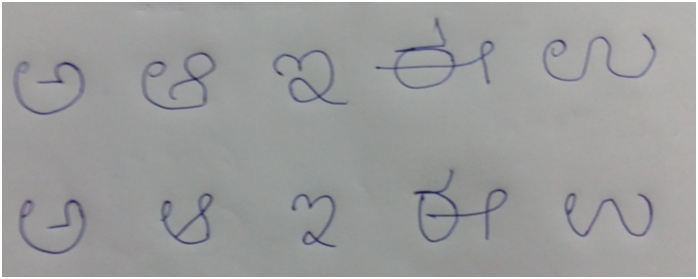 ಅ ಆ ಇ ಈ ಉ
ಅ ಆ ಇ ಈ ಉ